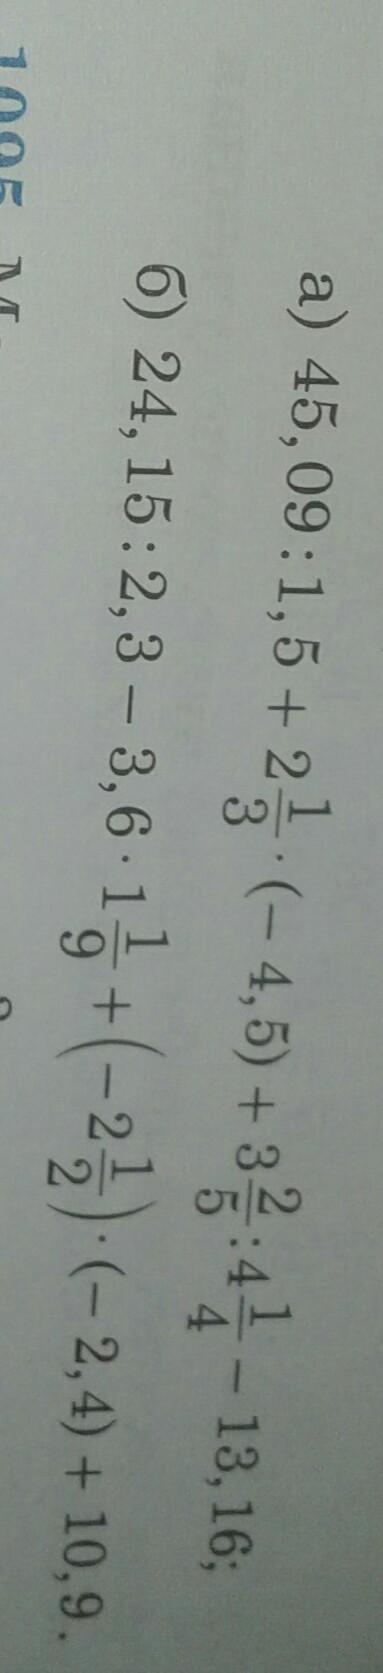 а) 45,09 : 1,5 + 2 1/3 · (− 4,5) + 3 2/5 : 4 1/4 − 13,16;
б) 24,15 : 2,3 − 3,6 · 1 1/9 + (−2 1/2) · (− 2,4) + 10,9.
1095